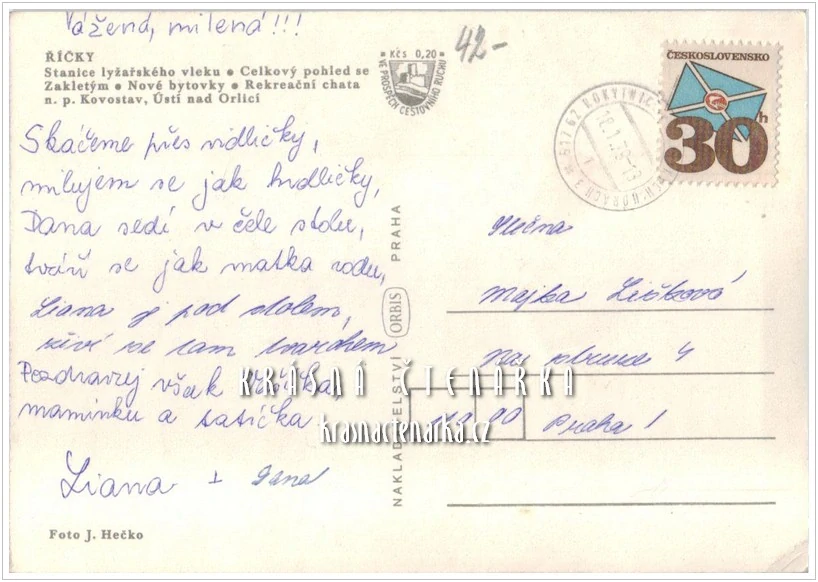 Vážená, milená!!!
ŘÍČKY
Stanice lyžařského vleku • Celkový pohled se
Zakletým • Nové bytovky • Rekreační chata
n. p. Kovostav, Ústí nad Orlicí
Kčs 0,20
VE PROSPĚCH CESTOVNÍHO RUCHU
42-
ČESKOSLOVENSKO
30h
517 62 ROKYTNICE
HORÁCH
18.1.78-13
Skáčeme přes vidličky,
milujem se jak hrdličky,
Dana sedí v čele stolu,
tváří se jak matka rodu,
Liana je pod stolem,
živí se tam tvarohem
Pozdravuj však
maminku a tatíčka
Liana + Dana
Foto J. Hečko
NAKLADATELSTVÍ ORBIS PRAHA
Slečna
Majka Ličková
Na 4
110 00 Praha 1
KRÁSNÁ ČTENÁRKA
krasnactenarka.cz